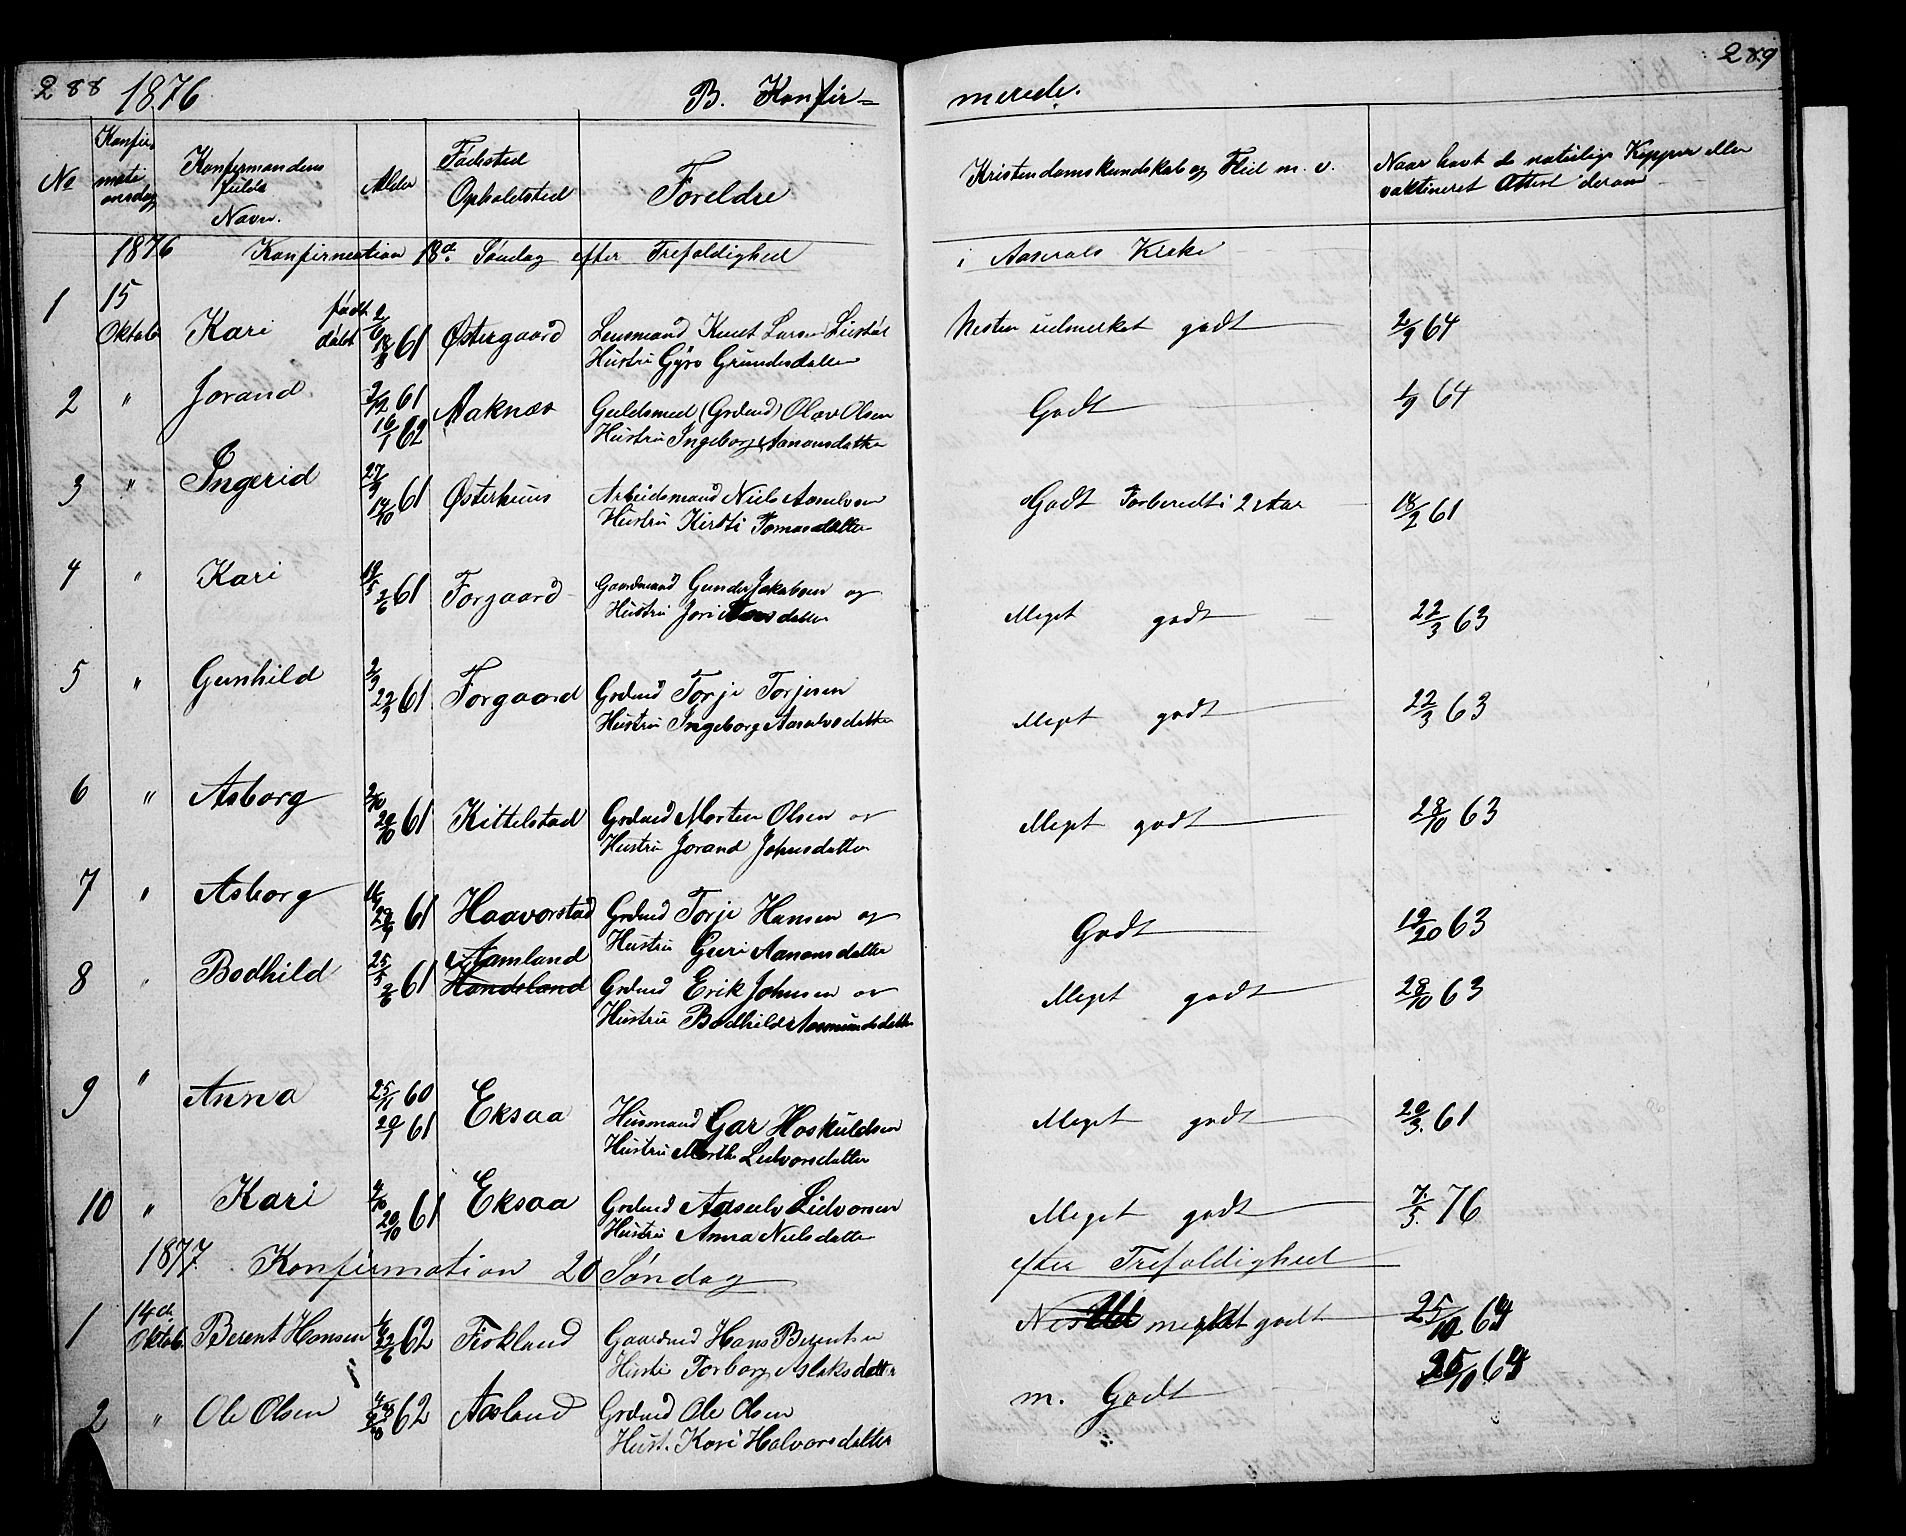 288 1876 B. Konfir- merede. 289
No Konfir mati onsdag Konfirmandens fulde Navn. Alder Fødested Opholdsted Foreldre Kristendomskundskab og Flid m. v. Naar havt de naturlige Kopper eller vaktineret Attest derom
1876 Konfirmation 18de Søndag efter Trefoldighed i Aaserals Kirke
1 15 Oktob Kari født 2/6 døbt 18/8 61 Østergaard Lensmand Knut Larsen Liestøl Nesten udmerket godt 2/9 64
Hustru Gyro Grundesdatter
2 " Jorand 7/12 61 16/1 62 Aaknæs Guldsmed (Grdmd) Olav Olsen Godt 1/9 64
Hustru Ingeborg Aanonsdatter
3 " Ingerid 27/9 14/10 61 Østerhuus Arbeidsmand Niels Aasulvsen Godt Forberedt i 2 Aar 18/2 61
Hustru Kirsti Tomasdatter
4 " Kari 19/5 2/6 61 Forgaard Gaardmand Gunder Jakobsen og Meget godt 22/3 63
Hustru Jori datter
5 " Gunhild 2/9 22/9 61 Forgaard Grdmd Torje Torjesen Meget godt 22/3 63
Hustru Ingeborg Aasulvsdatter
6 " Asborg 2/10 20/10 61 Kittelstad Grdmd Morten Olsen og Meget godt 28/10 63
Hustru Jorand Johnsdatter
7 " Asborg 16/9 29/9 61 Haavorstad Grdmd Torje Hansen og Godt 19/20 63
Hustru Guri Aanonsdatter
8 " Bodhild 25/5 2/6 61 Aamland Handeland Grdmd Erik Johnsen og Meget godt 28/10 63
Hustru Bodhild Aasmundsdatter
9 " Anna 25/11 60 20/1 61 Eksaa Husmand Gar Hoskuldsen Meget godt 20/3 61
Hustru Marthe Lidvorsdatter
10 " Kari 4/10 20/10 61 Eksaa Grdmd Aasulv Lidvorsen Meget godt 7/5 76
Hustru Anna Nielsdatter
1877. Konfirmation 20 Søndag efter Trefoldighed
1 14de Oktob. Berent Hansen 22/6 62 Fiskland Gaardmd Hans Berentsen meget godt 25/10 64
Hustru Torborg Aslaksdatter 25/10 64
2 " Ole Olsen 62 Aasland Grdmd Ole Olsen m. Godt
Hust. Kari Halvorsdatter